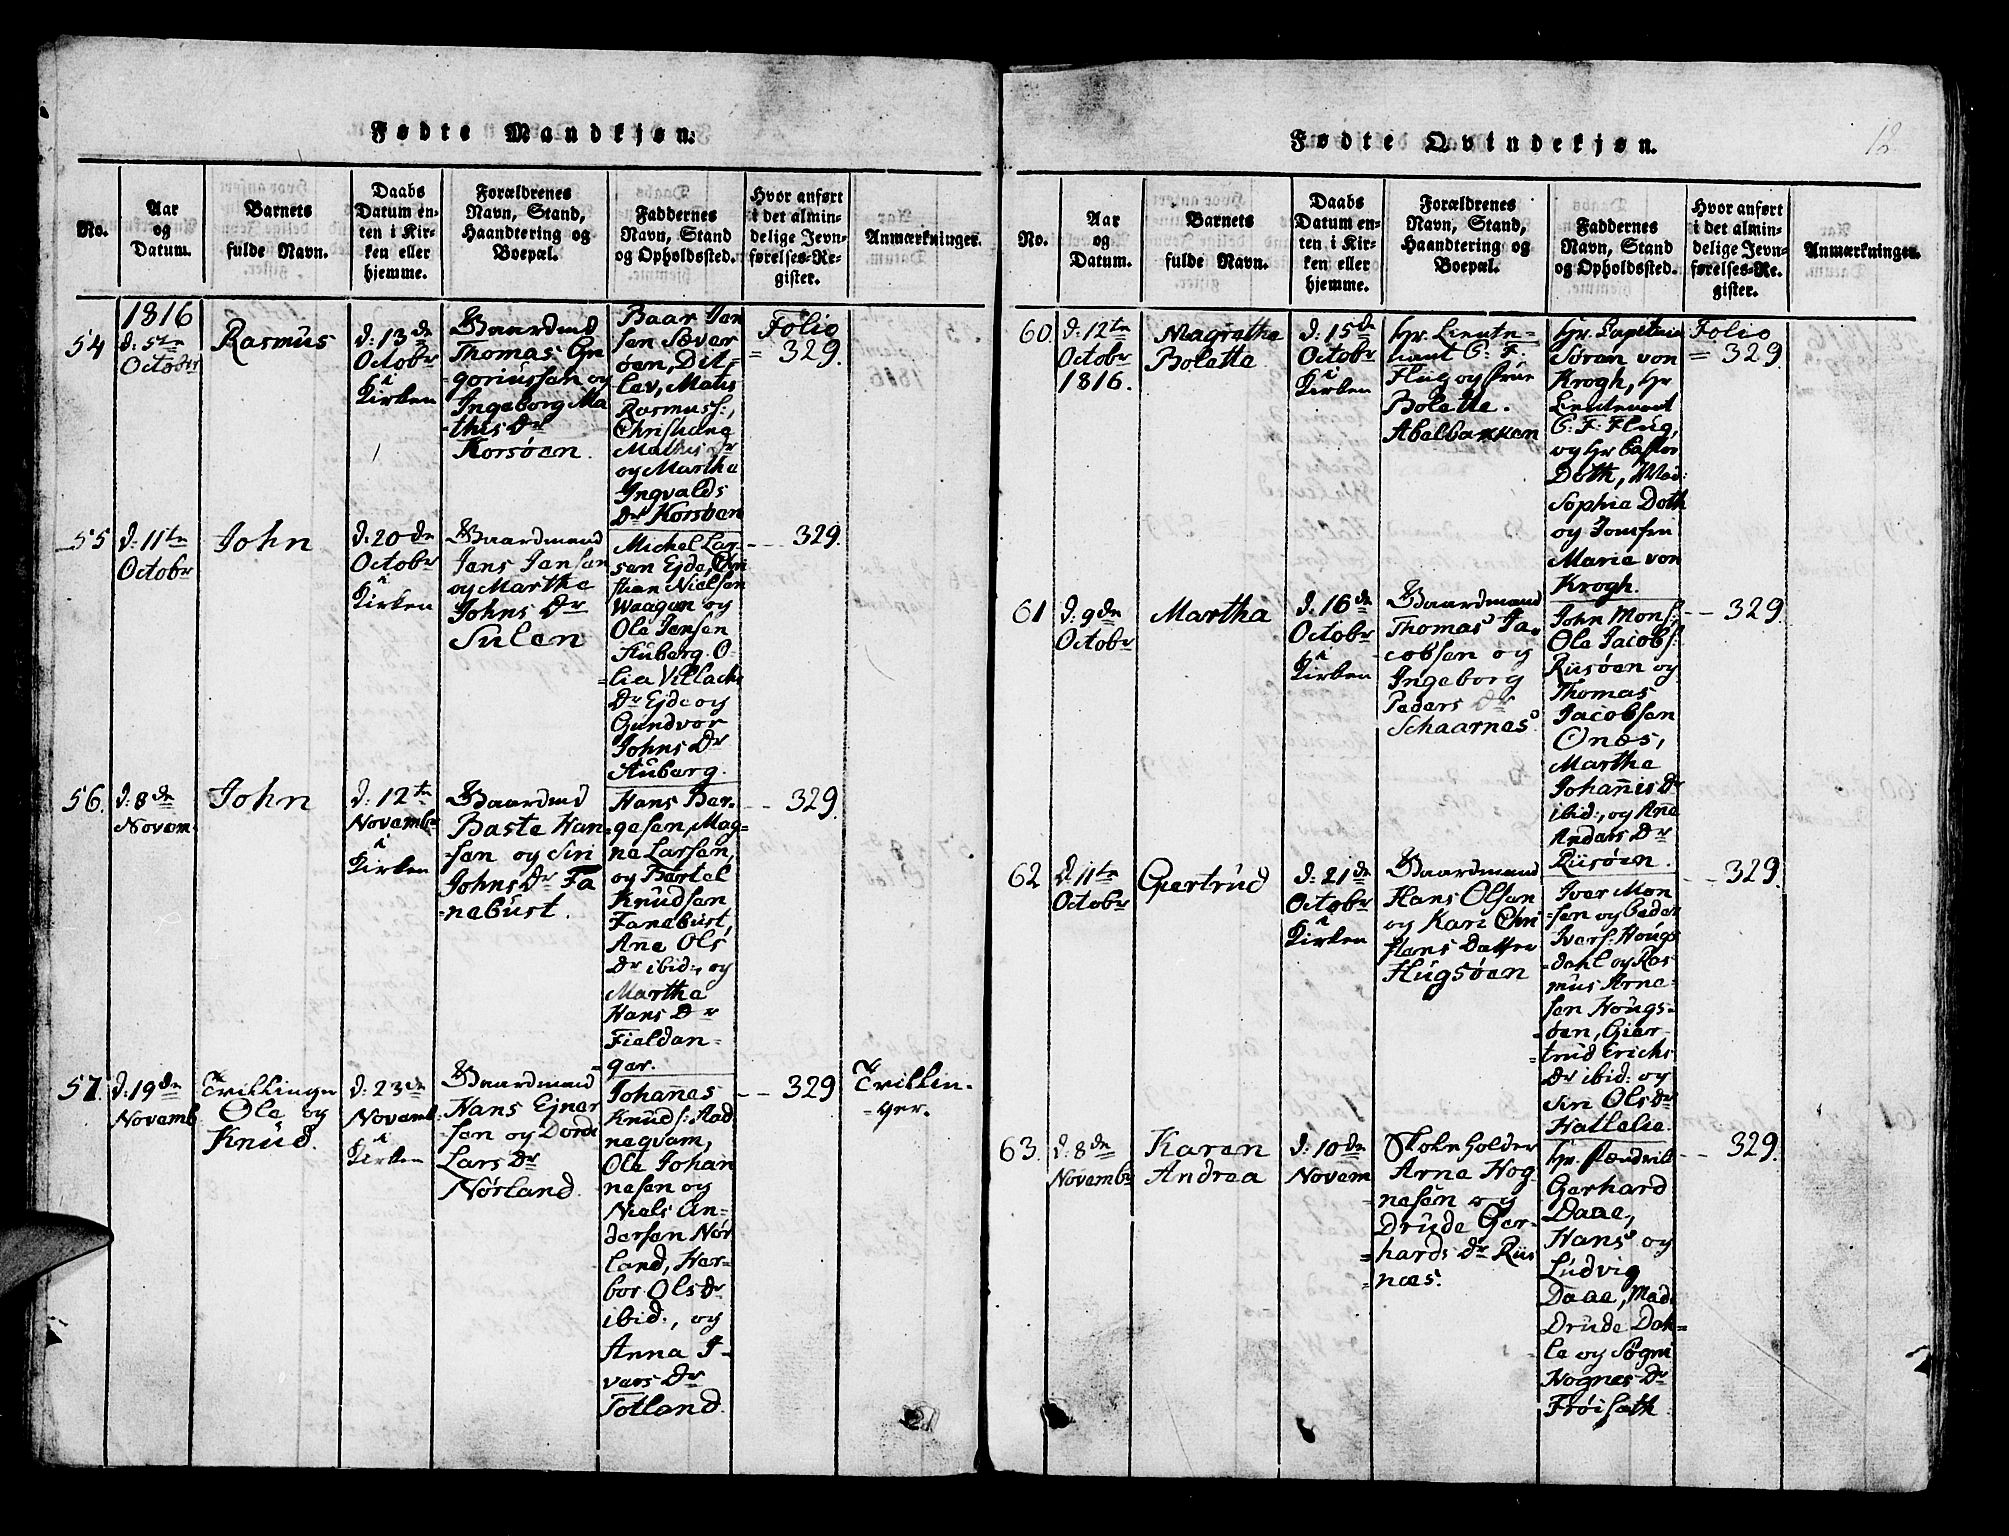 Fødte Mandkjøn.
No.
Aar
og
Datum.
Barnets
fulde Navn.
Daabs
Datum en-
ten i Kir-
ken eller
hjemme.
Forældrenes
Navn, Stand,
Haandtering og
Boepæl.
Faddernes
Navn, Stand
og Opholdssted.
Hvor anført
i det almin-
delige Jevn-
førelses-Re-
gister.
Anmærkninger.
54
1816
d: 5te
Octobr
Rasmus
d: 13de
Octobr
i
Kirken
Gaardmd
Thomas Gre
goriussen og
Ingeborg Ma
-this Dr
Korsøen.
Baar Jen
sen Sæver
øen, Dit-
lev, Mats
Rasmuss:,
Christiane
Mathis Dr
og Martha
Ingvalds
Dr Korsøen
Folio
= 329.
55
d: 11te
Octobr
John
d: 20de
Octobr
i
Kirken
Gaardmand
Jens Jensen
og Martha
Johns Dr
Sulen
Michel Lar-
sen Ejde, Chri
stian Nielsen
Waagen og
Ole Jensen
Stuberg. O-
-lia Villachs
Dr Ejde og
Gundvor
Johns Dr
Stuberg.
-- 329.
56.
d: 8de
Novem
John
d: 12te
Novembr
i
Kirken
Gaardmd
Baste Han-
-sen og Siri
Johns Dr Fa
-nebust.
Hans Bør-
-gesen, Mag-
ne Larsen,
og Bertel
Knudsen
Fanebust,
Ane Ols
Dr ibid:, og
Martha
Hans Dr
Fieldan-
-ger.
-- 329.
57.
d: 19de
Novemb
Tvillinge
Ole og
Knud.
d: 23de
Novemb
i
Kirken
Gaardmand
Hans Ejner
sen og Dorde
Lars Dr
Nørland.
Johanes
Knuds: Aad
negvam,
Ole Johan
nesen og
Niels An-
dersen Nør
land, Her-
bor Ols Dr
ibid:, og
Anna I-
vers Dr
Totland.
-- 329
Tvillin-
-ger.
Fødte Qvindekjøn.
12
No.
Aar
og
Datum.
Barnets
fulde Navn.
Daabs
Datum en-
ten i Kir-
ken eller
hjemme.
Forældrenes
Navn, Stand,
Haandtering og
Boepæl.
Faddernes
Navn, Stand
og Opholdssted.
Hvor anført
i det almin-
delige Jevn-
førelses-Re-
gister.
Anmærkninger.
60.
d: 12te
Octobr
1816.
Magretha
Boletta
d: 15de
Octobr
i
Kirken
Hr. Lieute-
nant C: F.
Flug og Frue
Bolette.
Abelbakken
Hr. Capitain
Søren von
Krogh, Hr
Lieutenant
C: F: Flug,
og Hr Pastor
Doth, Mad:
Sophia Doth
og Jomfru
Marie von
Krogh.
Folio
= 329.
61
d: 9de
Octobr
Martha
d: 16de
Octobr
i
Kirken
Gaardmand
Thomas Ja-
cobsen og
Ingeborg
Peders Dr
Schaarnes
John Mons:
Ole Jacobs:
Risøen og
Thomas
Jacobsen
Onæs,
Martha
Johanis Dr
ibid:, og Ane
Anders Dr
Riisøen.
-- 329.
62
d: 11te
Octobr
Giertrud
d: 21de
Octobr
i
Kirken
Gaardmand
Hans Olsen
og Kari Chri
stens Datter
Hugsøen
Iver Mon
-sen og Peder
Ivers: Houg
-dahl og Ras
mus Arne-
sen Hougs-
-øen, Gier-
-trud Erichs
Dr ibid: og
Siri Ols Dr
Hattelie.
-- 329.
63.
d: 8de
Novembr
Karen
Andrea
d: 10de
Novem
Skoleholder
Arne Hog-
nesen og
Drude Ger-
-hards Dr Riis
-næs.
Hr.
Gerhard
Daae,
Hans og
Ludvig
Daae, Mad.
Drude Dah-
le og Søgni
Hognes Dr
Frøiseth
-- 329.